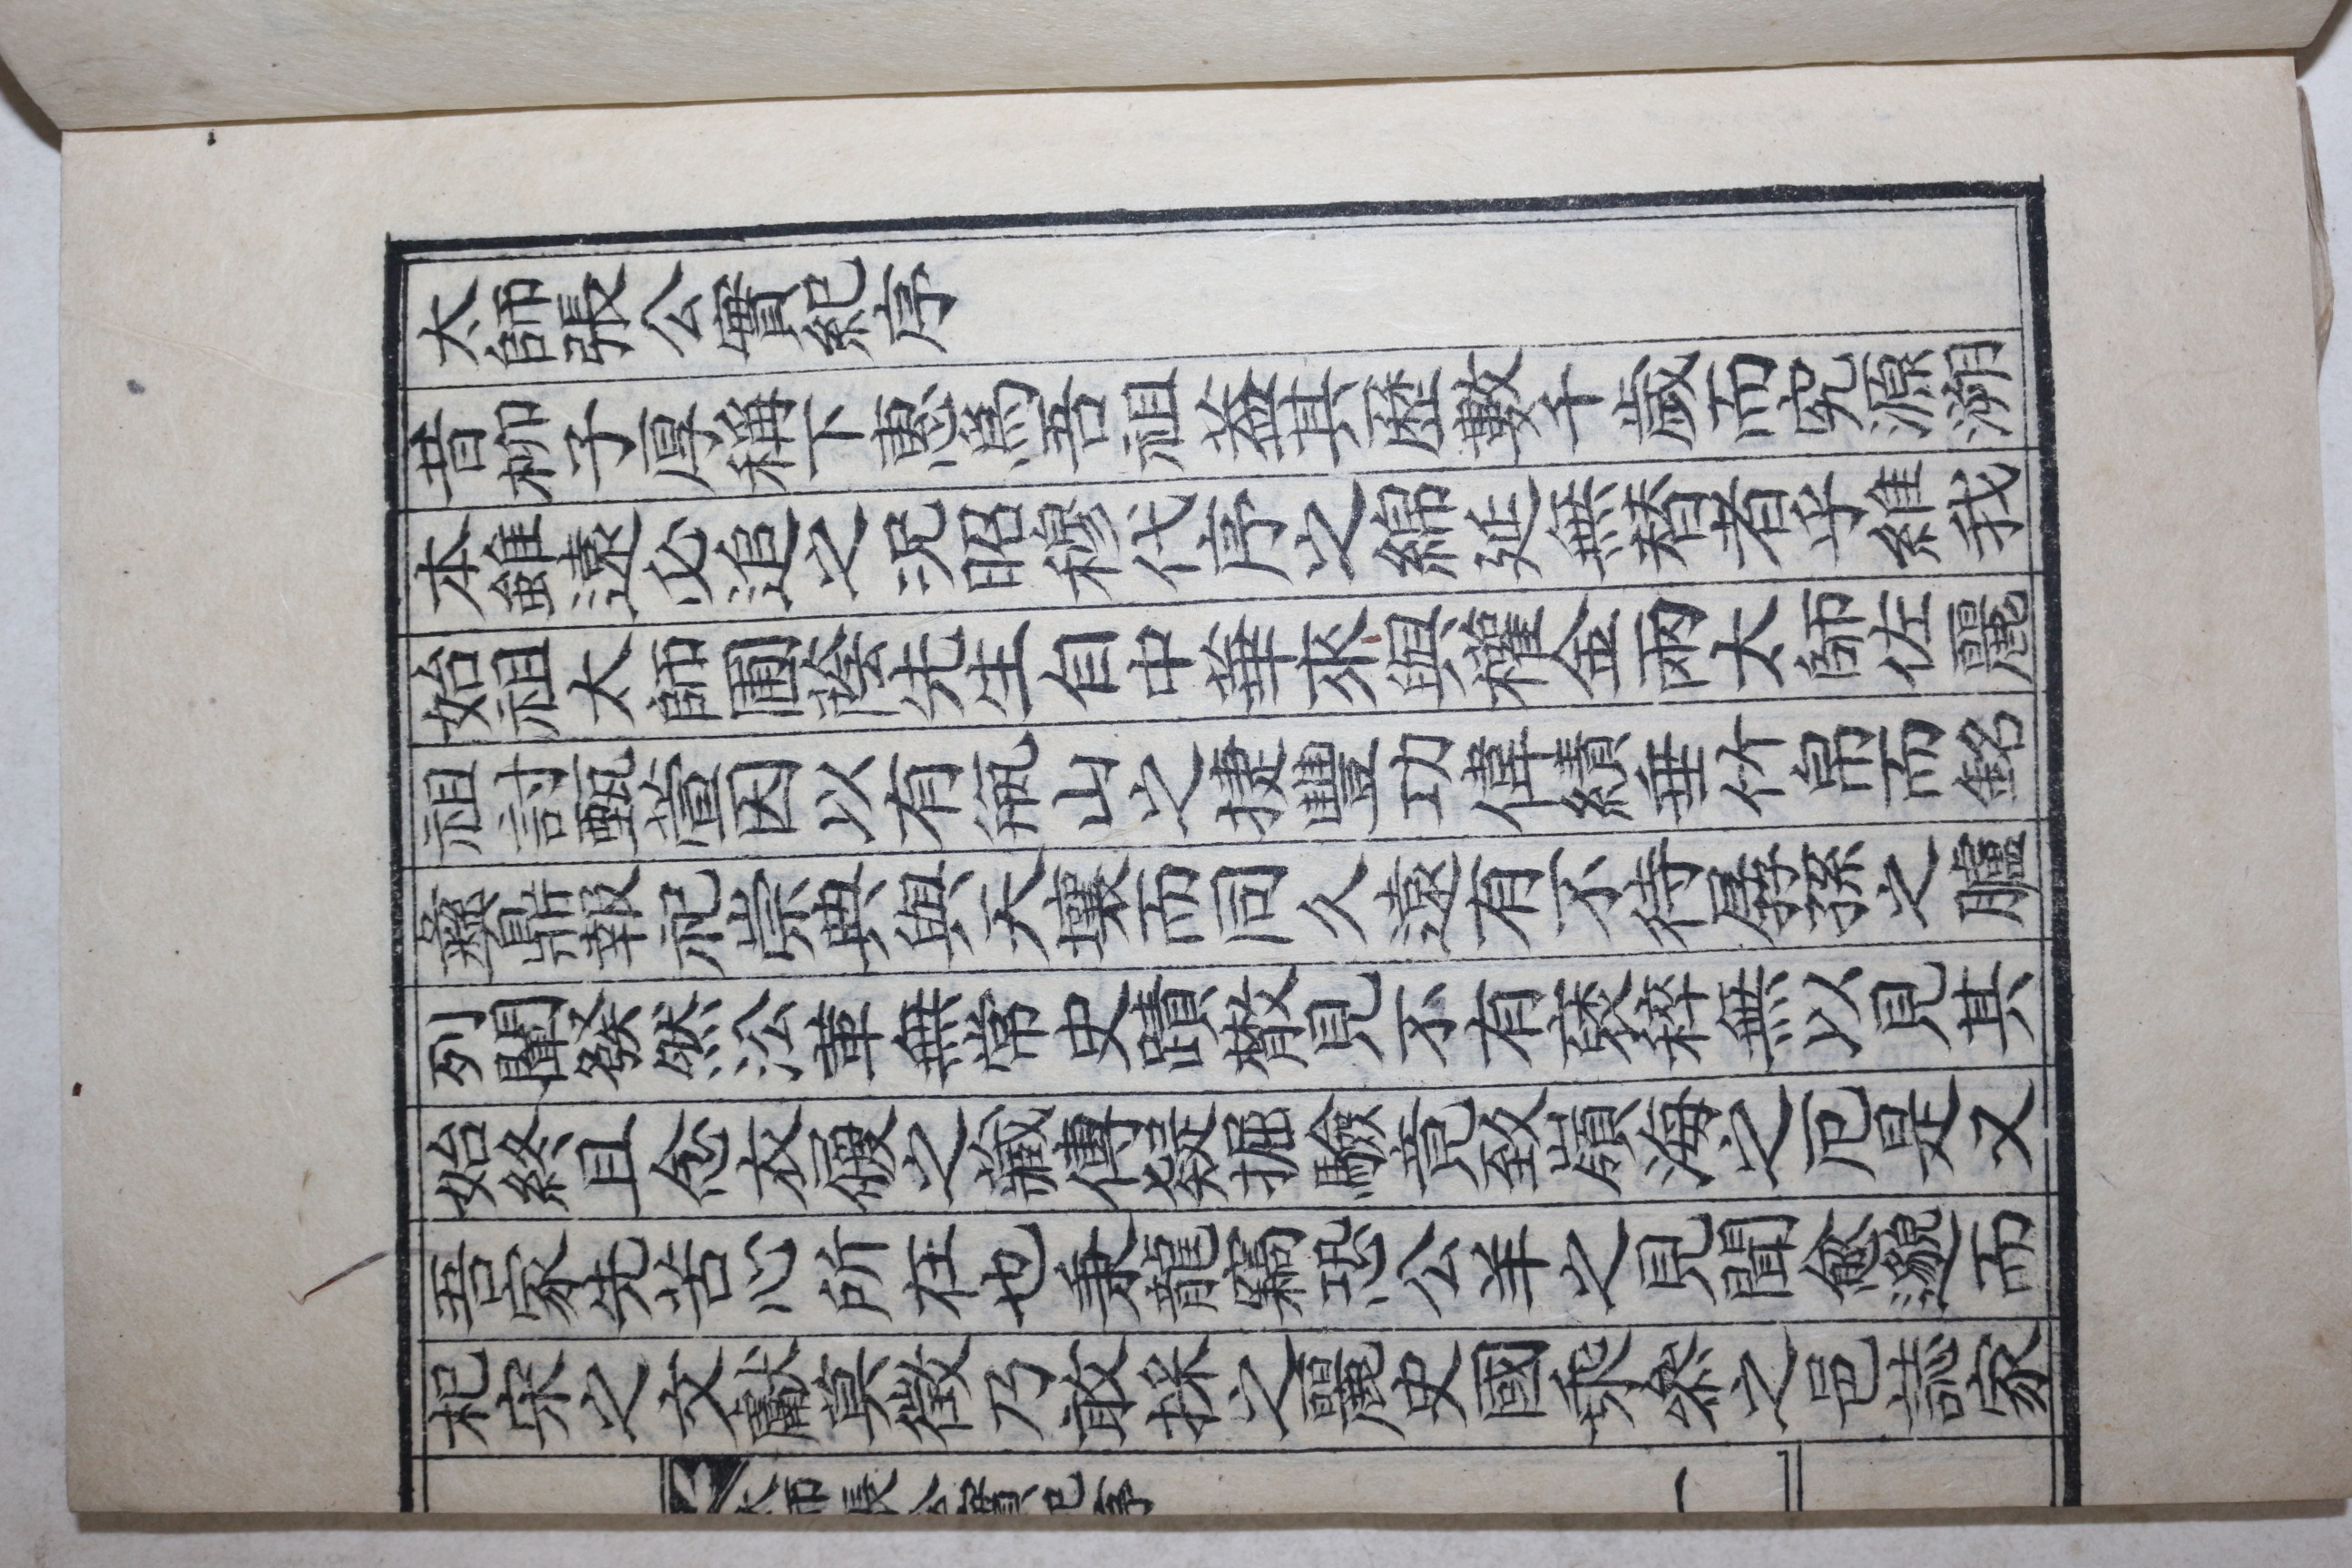 太師張公實紀序
昔柳子厚稱下惠爲吾祖蓋其歷數千歲而究源溯
本雖遠必追之况昭穆代序之綿延無替者乎維我
始祖太師圃蔭先生自中華來與權金兩太師佐麗
祖討甄萱因以有甁山之捷豐功偉績垂竹帛而銘
彝鼎報祀崇典與天壤而同久遠有不待孱孫之臚
列闡發然沿革無常史蹟散見不有裒稡無以見其
始終且念衣履之藏傳疑掘驗竟致嶺海之厄是又
吾家先苦心所在也秉龍竊恐公羊之見聞愈邈而
杞宋之文獻莫徵乃敢採之麗史國乘參之邑誌家
太師張公實紀序 一